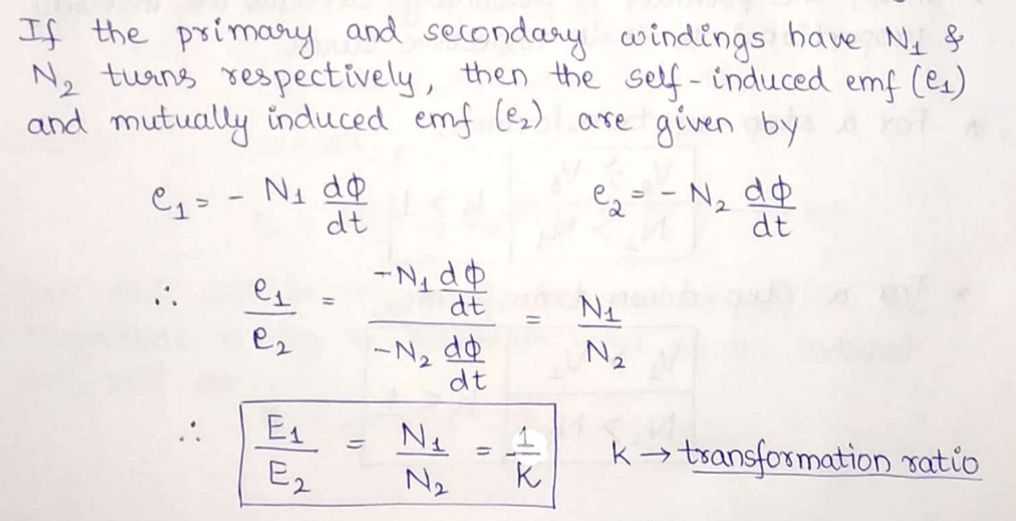 If the primary and secondary windings have N₁ &
N₂ turns respectively, then the self-induced emf (e₁)
and mutually induced emf (e₂) are given by
e₁ = - N₁ dϕ/dt    e₂ = - N₂ dϕ/dt
∴ e₁/e₂ = (-N₁ dϕ/dt)/(-N₂ dϕ/dt) = N₁/N₂
∴ E₁/E₂ = N₁/N₂ = 1/K    K → transformation ratio